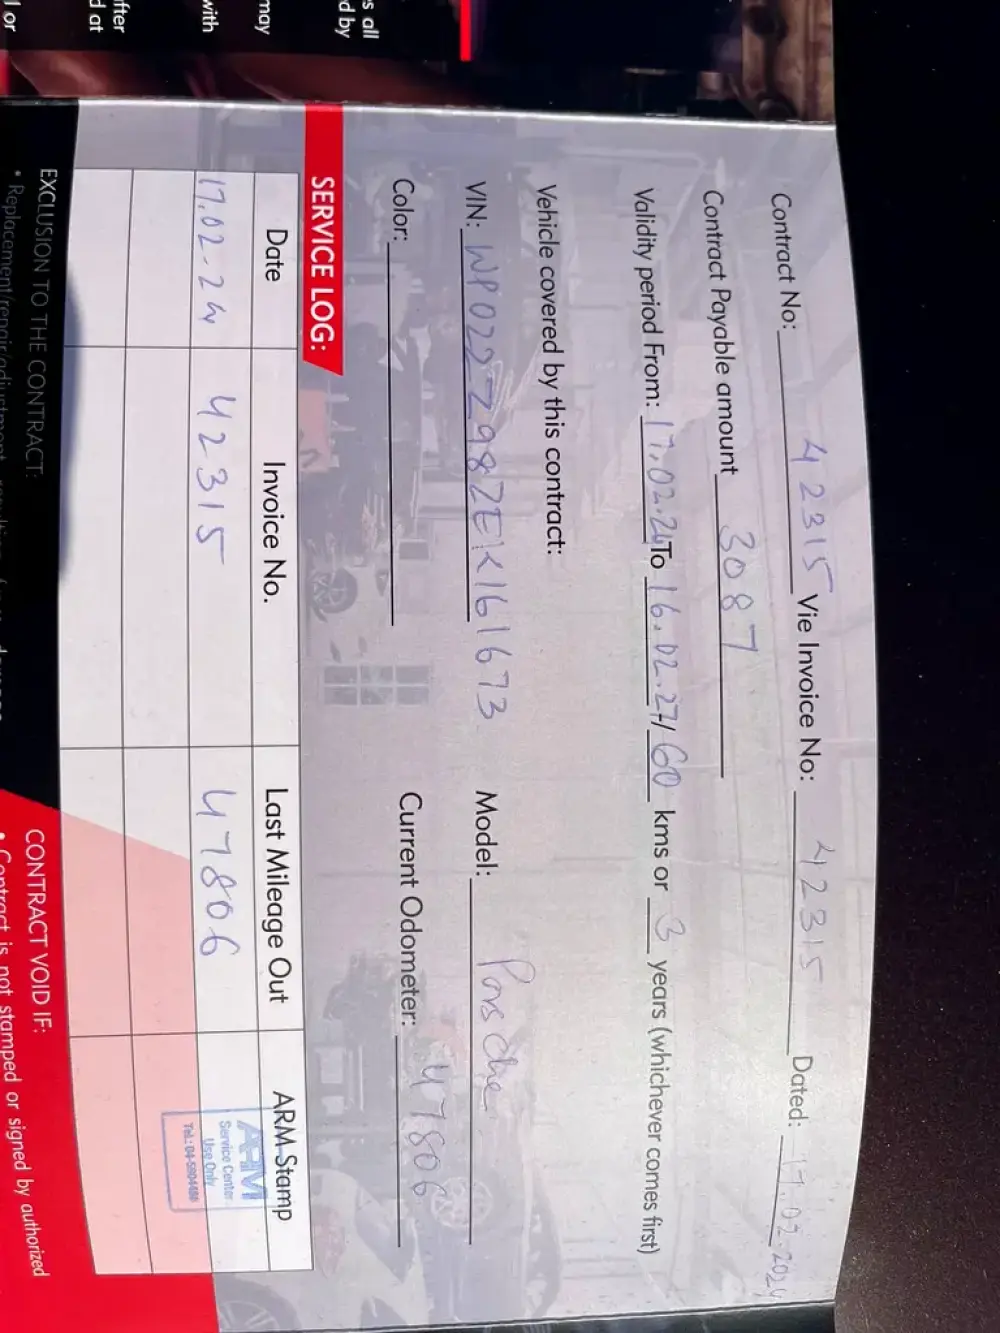 s all
d by
may
with
fter
d at
l or
Contract No: 42315 Vie Invoice No: 42315 Dated: 17.02.2024
Contract Payable amount 3087
Validity period From: 17.02.24 To 16.02.27/ 60 kms or 3 years (whichever comes first)
Vehicle covered by this contract:
VIN: WP022Z98ZEK161673 Model: Porsche
Color: Current Odometer: 47806
SERVICE LOG:
Date Invoice No. Last Mileage Out ARM Stamp
17.02-24 42315 47806
ARM
Service Center
Use Only
Tel.: 04-5904488
EXCLUSION TO THE CONTRACT:
• Replacement/repair/adjustment
CONTRACT VOID IF:
• Contract is not stamped or signed by authorized